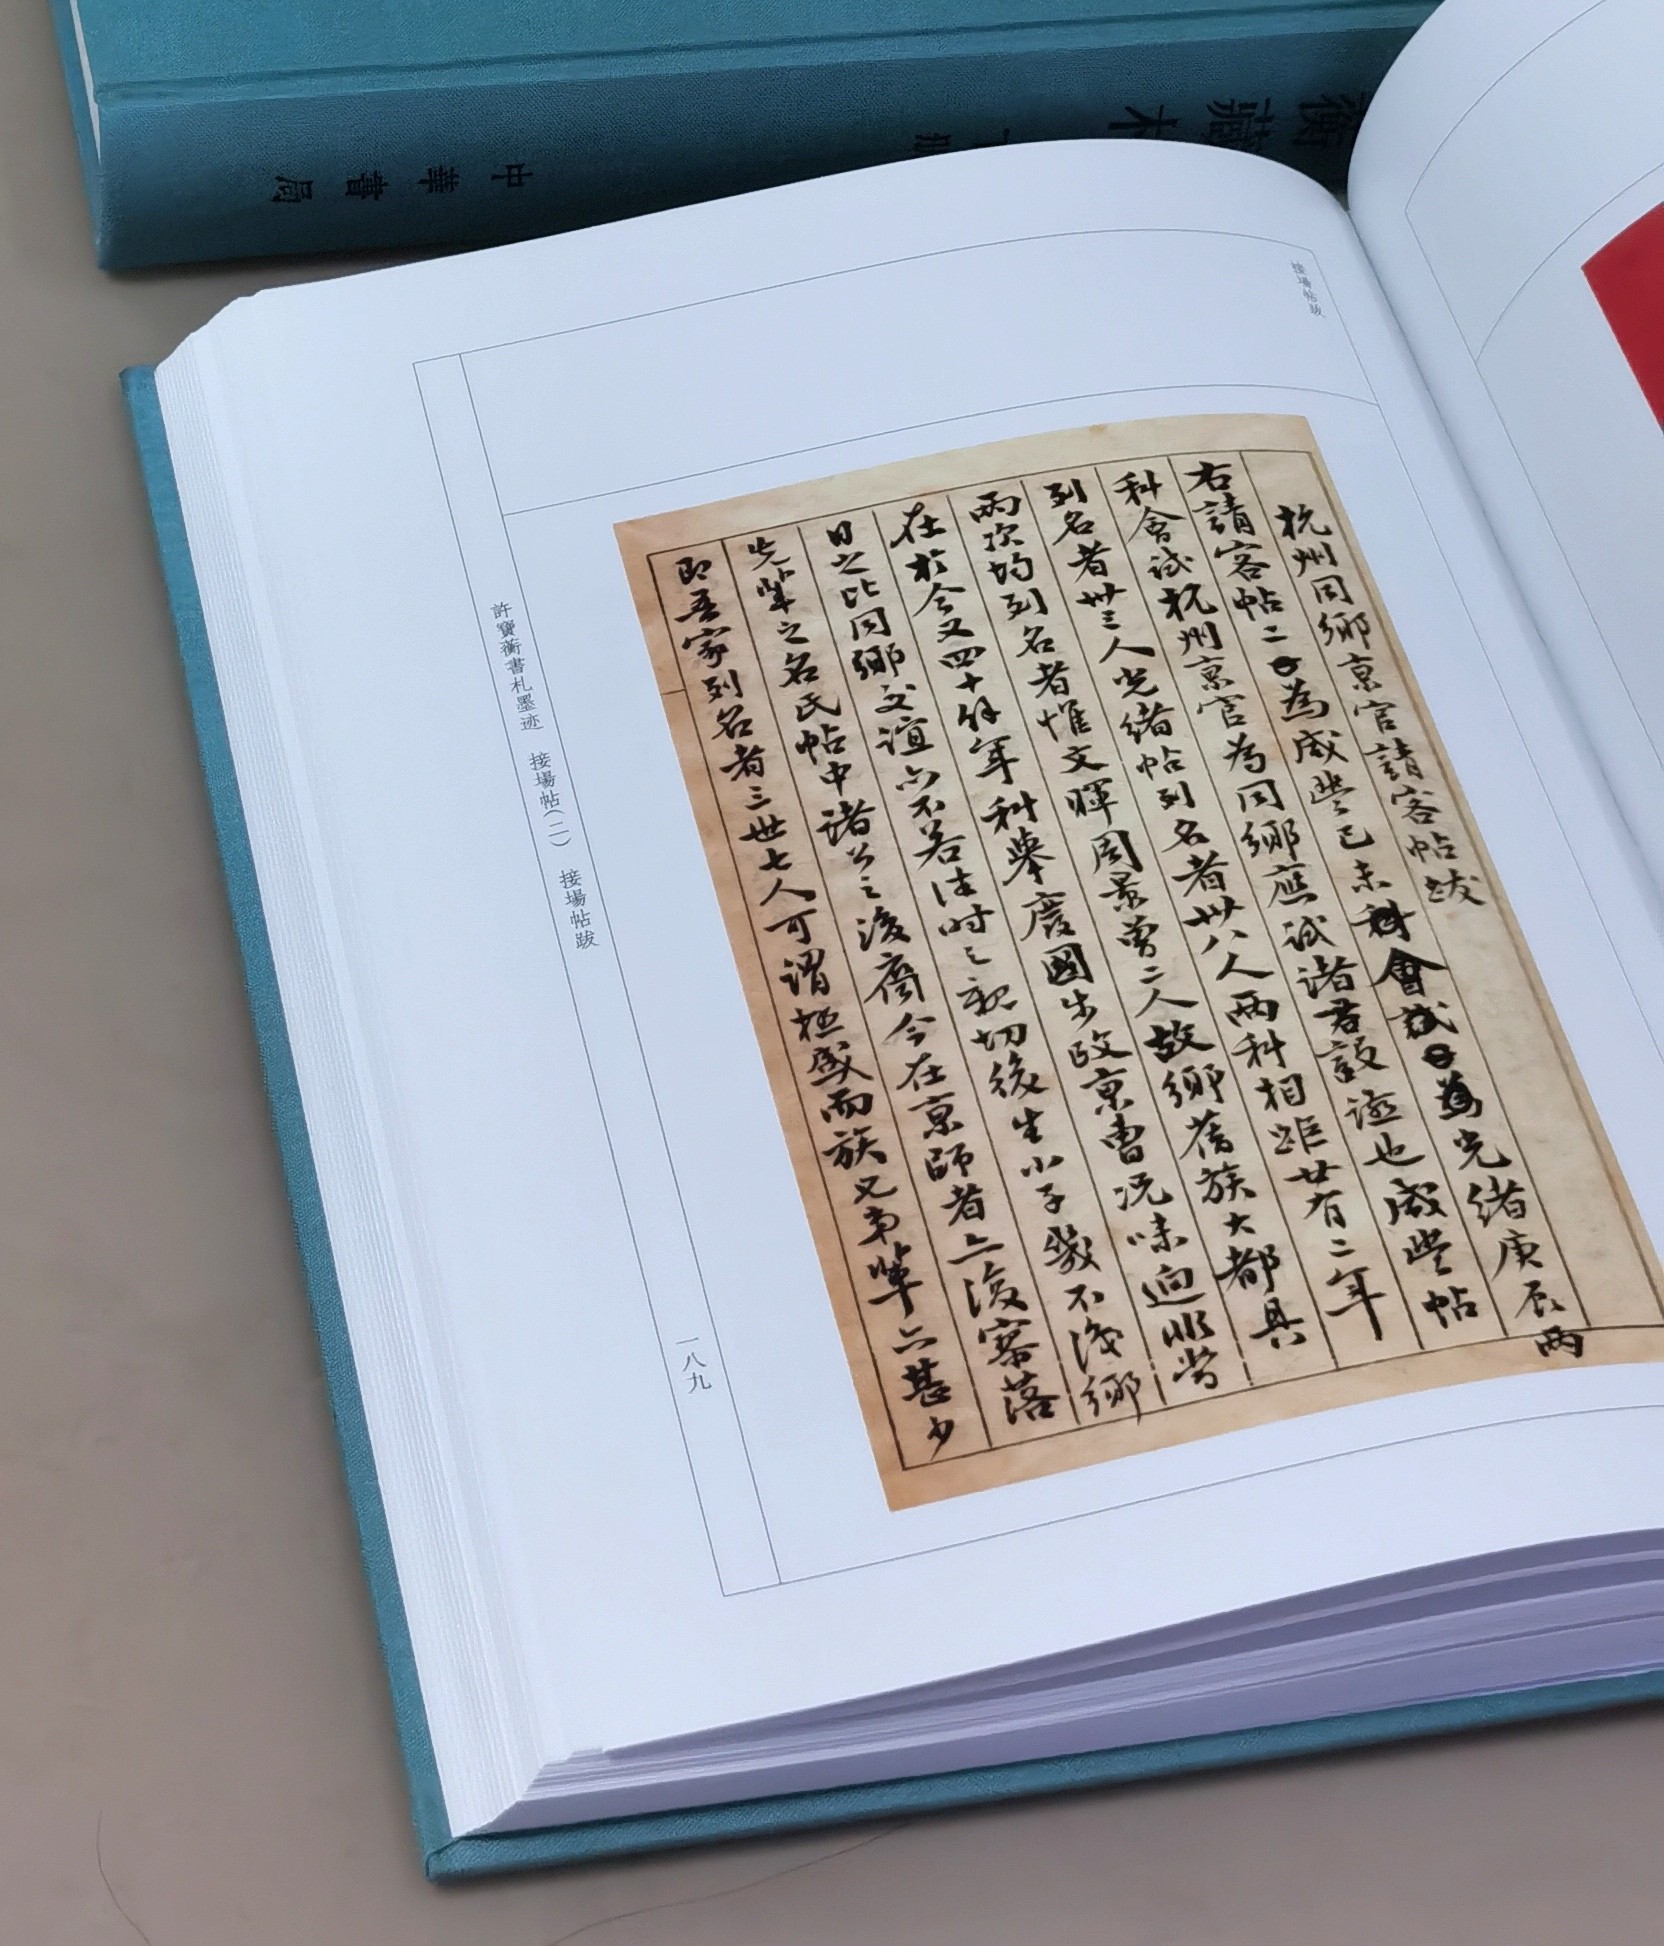 中華書局
蘅藏札
下冊
接場帖跋
杭州同鄉京官請客帖跋
右請客帖二為咸豐己未科會試為光緒庚辰兩
科會試杭州京官為同鄉應試諸君設讌也咸豐帖
列名者卅三人光緒帖列名者卅八人兩科相距廿有二年
兩次均列名者惟文暉周景曾二人故鄉舊族大都具
在於今又四十餘年科舉廢國步改京曹況味迥非昔
日之比同鄉交誼亦不若往時之親切後生小子幾不識鄉
先輩之名氏帖中諸公之後裔今在京師者亦復寥落
即吾家列名者三世七人可謂極盛而族兄弟輩亦甚少
許寶蘅書札墨迹 接場帖(二) 接場帖跋
一八九